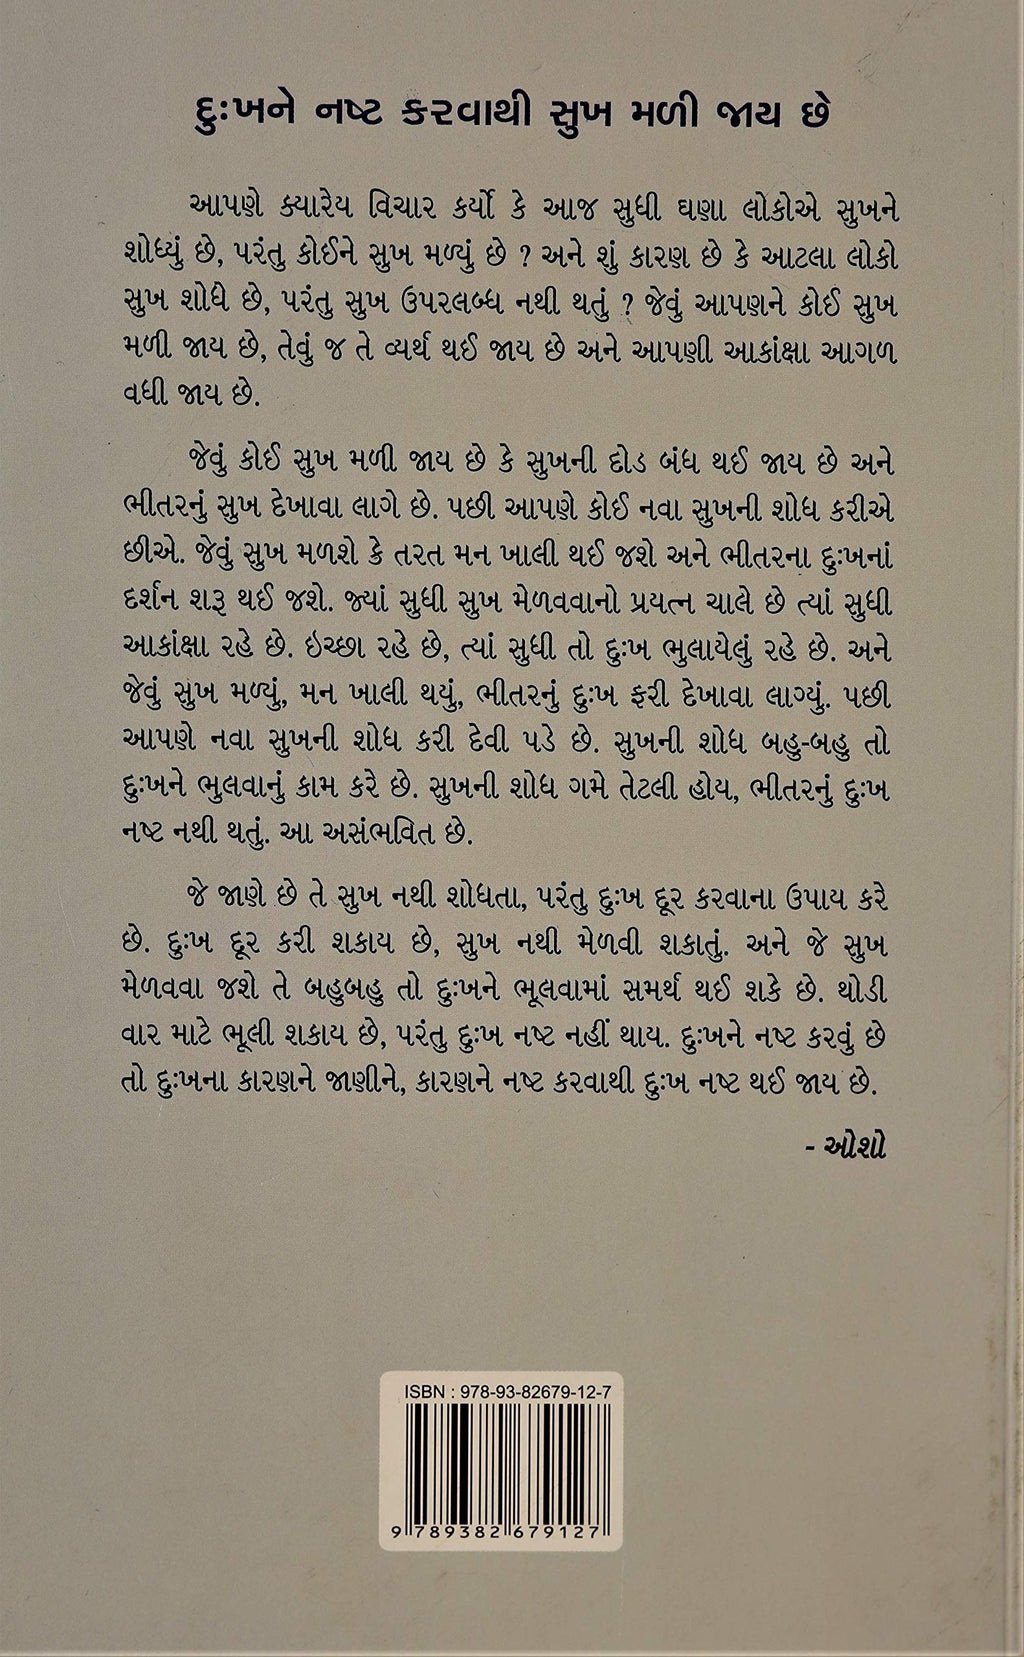 દુઃખને નષ્ટ કરવાથી સુખ મળી જાય છે
આપણે ક્યારેય વિચાર કર્યો કે આજ સુધી ઘણા લોકોએ સુખને
શોધ્યું છે, પરંતુ કોઈને સુખ મળ્યું છે ? અને શું કારણ છે કે આટલા લોકો
સુખ શોધે છે, પરંતુ સુખ ઉપરલબ્ધ નથી થતું ? જેવું આપણને કોઈ સુખ
મળી જાય છે, તેવું જ તે વ્યર્થ થઈ જાય છે અને આપણી આકાંક્ષા આગળ
વધી જાય છે.
જેવું કોઈ સુખ મળી જાય છે કે સુખની દોડ બંધ થઈ જાય છે અને
ભીતરનું સુખ દેખાવા લાગે છે. પછી આપણે કોઈ નવા સુખની શોધ કરીએ
છીએ. જેવું સુખ મળશે કે તરત મન ખાલી થઈ જશે અને ભીતરના દુઃખનાં
દર્શન શરૂ થઈ જશે. જ્યાં સુધી સુખ મેળવવાનો પ્રયત્ન ચાલે છે ત્યાં સુધી
આકાંક્ષા રહે છે. ઇચ્છા રહે છે, ત્યાં સુધી તો દુઃખ ભુલાયેલું રહે છે. અને
જેવું સુખ મળ્યું, મન ખાલી થયું, ભીતરનું દુઃખ ફરી દેખાવા લાગ્યું. પછી
આપણે નવા સુખની શોધ કરી દેવી પડે છે. સુખની શોધ બહુ-બહુ તો
દુઃખને ભુલવાનું કામ કરે છે. સુખની શોધ ગમે તેટલી હોય, ભીતરનું દુઃખ
નષ્ટ નથી થતું. આ અસંભવિત છે.
જે જાણે છે તે સુખ નથી શોધતા, પરંતુ દુઃખ દૂર કરવાના ઉપાય કરે
છે. દુઃખ દૂર કરી શકાય છે, સુખ નથી મેળવી શકાતું. અને જે સુખ
મેળવવા જશે તે બહુબહુ તો દુઃખને ભૂલવામાં સમર્થ થઈ શકે છે. થોડી
વાર માટે ભૂલી શકાય છે, પરંતુ દુઃખ નષ્ટ નહીં થાય. દુઃખને નષ્ટ કરવું છે
તો દુઃખના કારણને જાણીને, કારણને નષ્ટ કરવાથી દુઃખ નષ્ટ થઈ જાય છે.
- ઓશો
ISBN : 978-93-82679-12-7
9 789382 679127